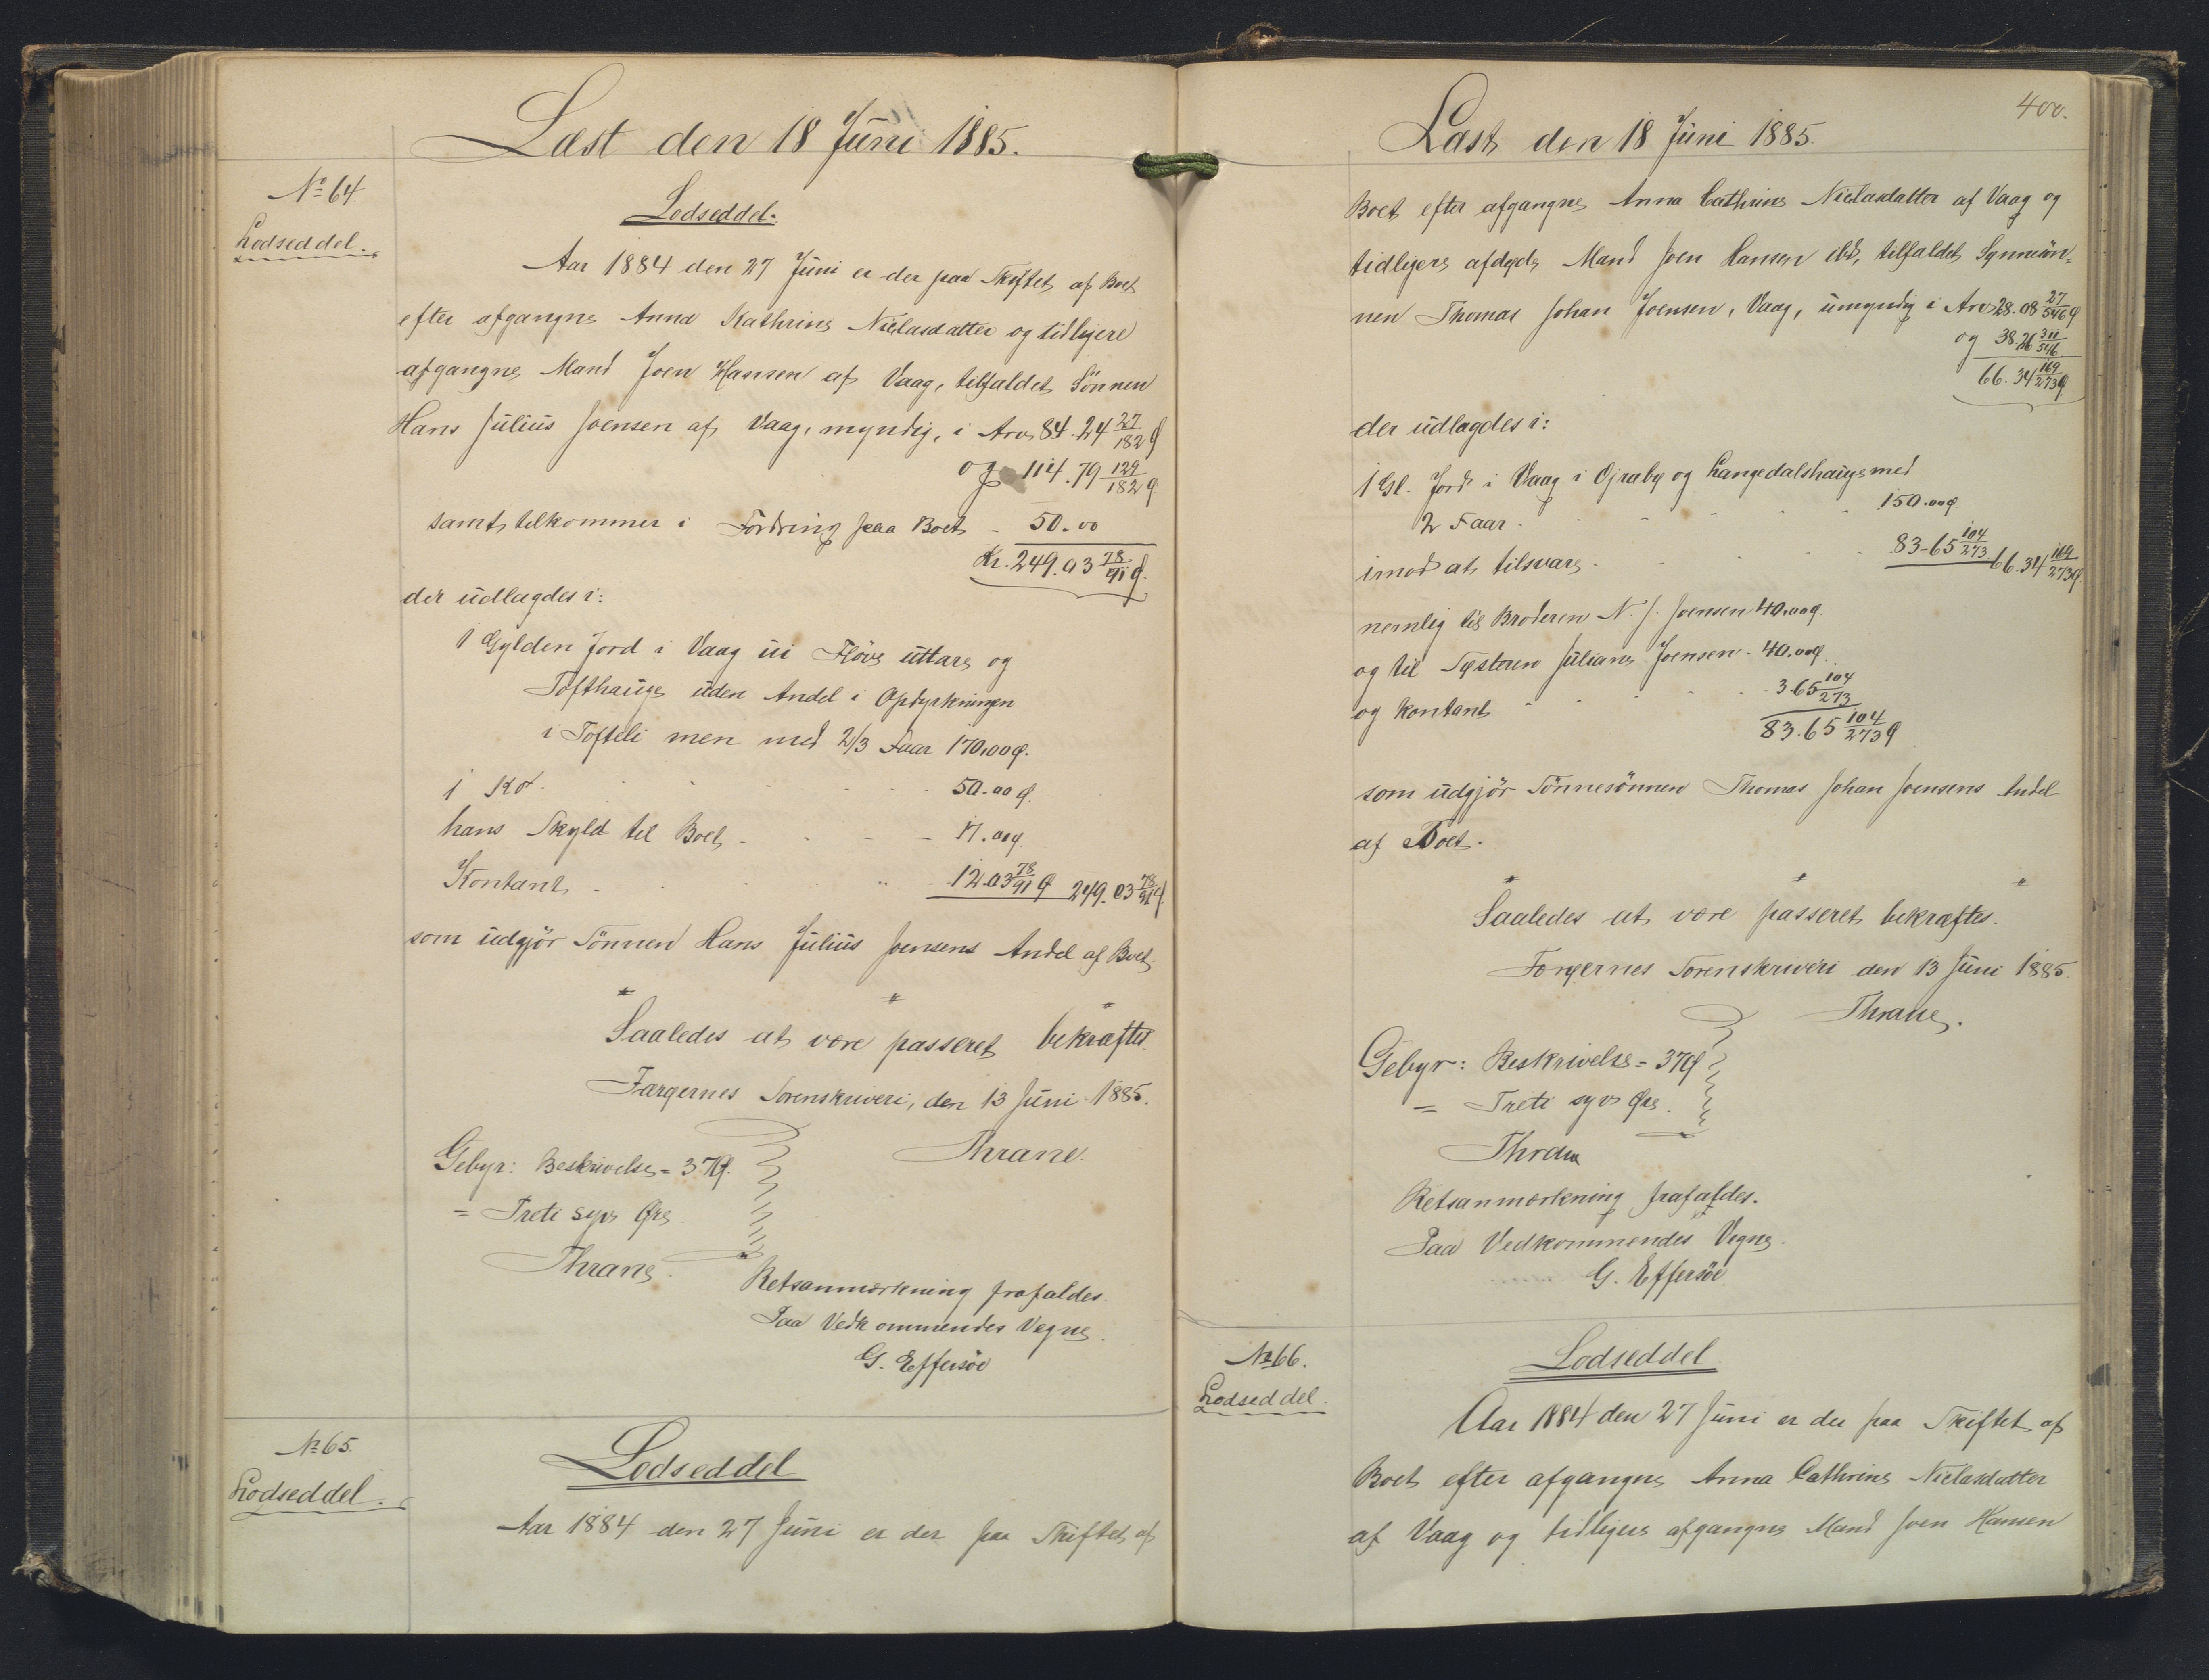 Læst den 18 Juni 1885.
No 64.
Lodseddel.
Lodseddel.
Aar 1884 den 27 Juni er der paa Skiftet af Boet
efter afgangne Anna Kathrine Nielasdatter og tidligere
afgangne Mand Joen Hansen af Vaag, tilfaldet Sönnen
Hans Julius Joensen af Vaag, myndig, i Arv 84.24 27/182 Ø
og 114.79 129/182 Ø
samt tilkommer i Fordring paa Boet - 50.00
Kr. 249.03 78/91 Ø.
der udlagdes i:
1 Gylden Jord i Vaag ui Fløve uttare og
Tofthauge uden Andel i Opdyrkningen
i Tofteli men med 2/3 Faar 170.00 Ø.
1 Ko - 50.00 Ø.
hans Skyld til Boet - 17.00 Ø
Kontant - 12.03 78/91 Ø 249.03 78/91 Ø.
som udgjör Sönnen Hans Julius Joensens Andel af Boet.
Saaledes at være passeret bekræftes.
Færøernes Sorenskriveri, den 13 Juni 1885.
Thrane.
Gebyr: Beskrivelse = 37 Ø.
= Treti syv Øre
Thrane.
Retsanmærkning frafaldes.
Paa Vedkommendes Vegne.
G. Effersöe
No 65.
Lodseddel.
Lodseddel
Aar 1884 den 27 Juni er der paa Skiftet af
400.
Læst den 18 Juni 1885.
Boet efter afgangne Anna Cathrine Nielasdatter af Vaag og
tidligere afdøde Mand Joen Hansen ibd, tilfaldet Synnesön-
nen Thomas Johan Joensen, Vaag, umyndig i Arv 28.08 27/546 Ø
og 38.26 311/546
66.34 169/273 Ø
der udlagdes i:
1 Gl. Jord i Vaag i Ojraby og Langedalshauge med
2 Faar - 150.00 Ø
imod at tilsvare - 83.65 104/273 66.34 169/273 Ø.
nemlig til Broderen N. J. Joensen 40.00 Ø.
og til Systeren Juliane Joensen - 40.00 Ø.
og kontant - 3.65 104/273
83.65 104/273 Ø
som udgjör Sönnesönnen Thomas Johan Joensens Andel
af Boet.
Saaledes at være passeret bekræftes.
Færøernes Sorenskriveri den 13 Juni 1885.
Thrane.
Gebyr: Beskrivelse = 37 Ø
= Treti syv Øre.
Thrane
Retsanmærkning frafaldes.
Paa Vedkommendes Vegne.
G. Effersöe
No 66.
Lodseddel.
Lodseddel.
Aar 1884 den 27 Juni er der paa Skiftet af
Boet efter afgangne Anna Cathrine Nielasdatter
af Vaag og tidligere afgangne Mand Joen Hansen